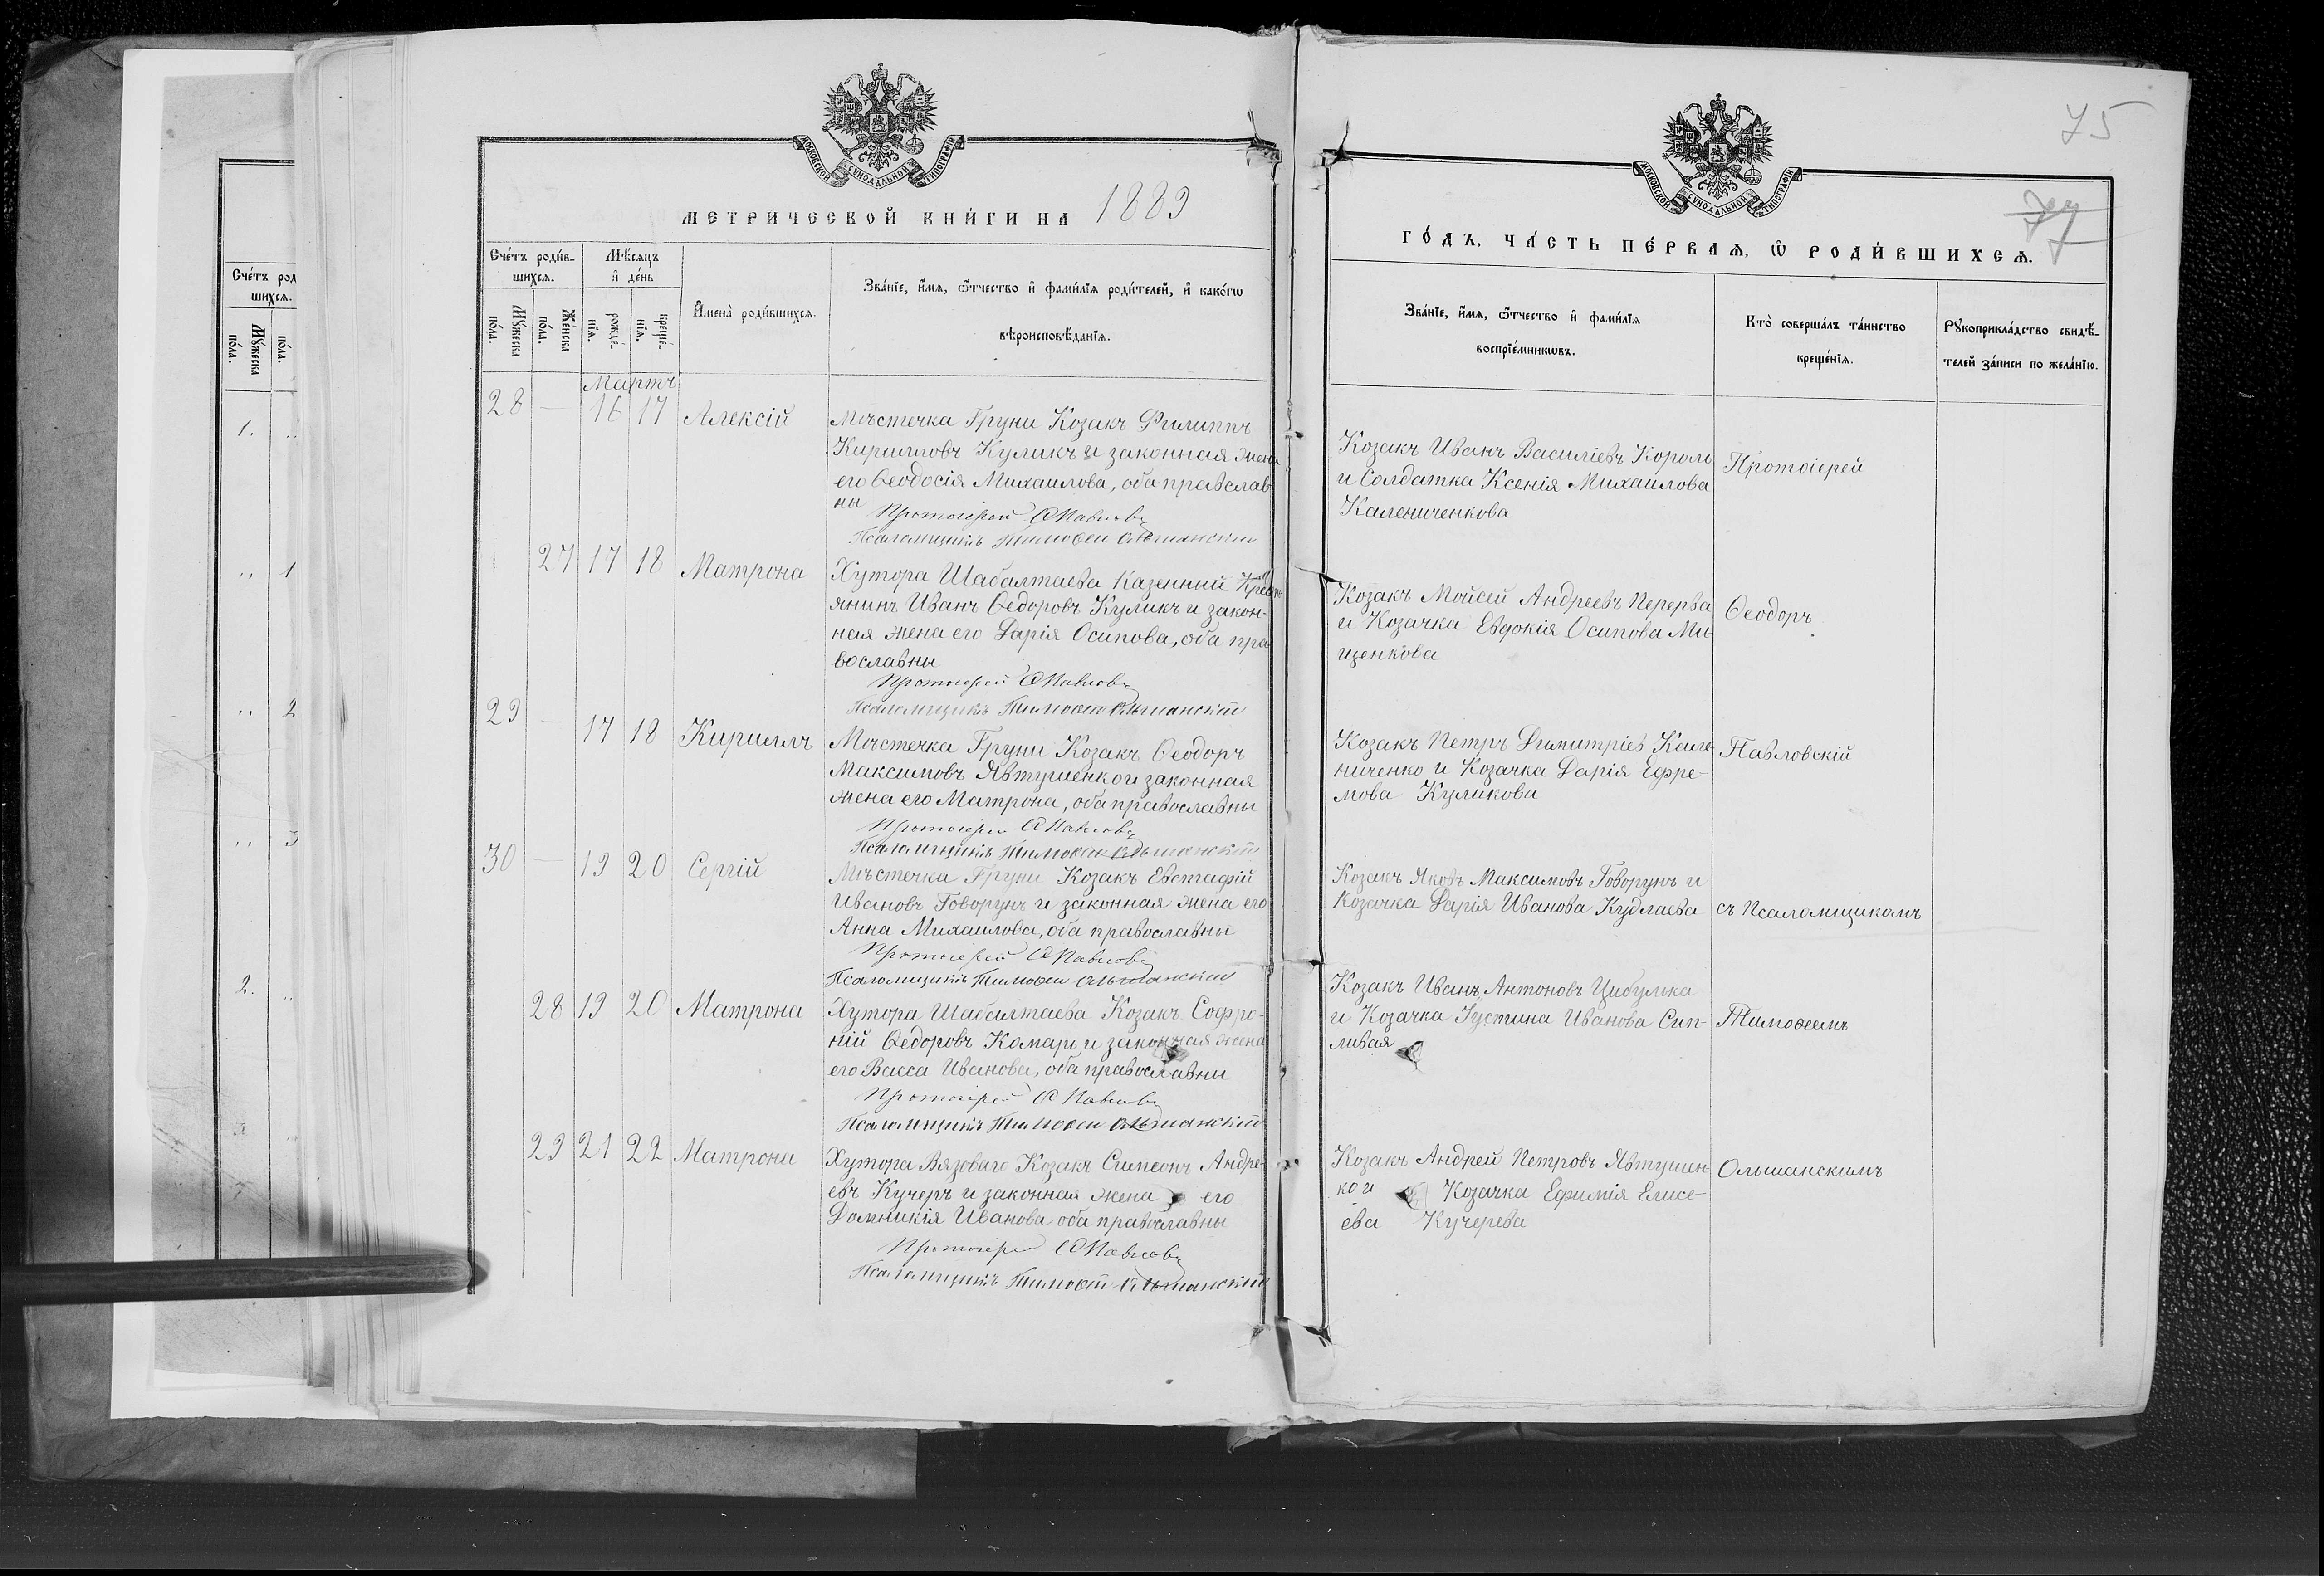 МОСКОВСКОЙ СѴНОДАЛЬНОЙ ТИПОГРАФІИ
МЕТРИ́ЧЕСКОЙ КНИ́ГИ НА 1889
Сче́тъ роди́в-
шихся.
Мѣ́сяцъ
и҆ де́нь
Мꙋ́жеска
по́ла.
Же́нска
по́ла.
рожде́-
нїя.
креще́-
нїя.
И҆мена̀ роди́вшихся.
Зва́нїе, и҆́мя, ѻ҆́тчество и҆ фами́лїя роди́телей, и҆ како́гѡ
вѣроисповѣ́данїя.
Мартъ
28 — 16 17 Алексій
Мѣстечка Груни Козакъ Филиппъ
Кирилловъ Куликъ и законная жена
его Ѳеодосія Михаилова, оба православ
ны
Протоіерей Ѳ Павловс
Псаломщикъ Тимоѳей Ольшанскій
27 17 18 Матрона
Хутора Шабалтаева Казенний Крест
янинъ Иванъ Ѳедоровъ Куликъ и закон-
ная жена его Дарія Осипова, оба пра
вославны
Протоіерей Ѳ Павловс
Псаломщикъ Тимоѳей Ольшанскій
29 — 17 18 Кириллъ
Мѣстечка Груни Козакъ Ѳеодоръ
Максимовъ Явтушенко и законная
жена его Матрона, оба православны
Протоіерей Ѳ Павловс
Псаломщикъ Тимоѳей Ольшанскій
30 — 19 20 Сергій
Мѣстечка Груни Козакъ Евстафій
Ивановъ Говорунъ и законная жена его
Анна Михаилова, оба православны
Протоіерей Ѳ Павловс
Псаломщикъ Тимоѳей Ольшанскій
28 19 20 Матрона
Хутора Шабалтаева Козакъ Софро-
ній Ѳедоровъ Комарь и законная жена
его Васса Иванова, оба православны
Протоіерей Ѳ Павловс
Псаломщикъ Тимоѳей Ольшанскій
29 21 22 Матрона
Хутора Вязоваго Козакъ Симеонъ Андре-
евъ Кучеръ и законная жена его
Домникія Иванова оба православны
Протоіерей Ѳ Павловс
Псаломщикъ Тимоѳей Ольшанскій
75
МОСКОВСКОЙ СѴНОДАЛЬНОЙ ТИПОГРАФІИ
ГО́ДЪ, ЧА́СТЬ ПЕ́РВАЯ, Ѡ҆ РОДИ́ВШИХСЯ.
Зва́нїе, и҆́мя, ѻ҆́тчество и҆ фами́лїя
воспрїе́мникѡвъ.
Кто̀ соверша́лъ та́инство
креще́нїя.
Рꙋкоприкла́дство свидѣ́-
телей за́писи по жела́нїю.
Козакъ Иванъ Василіевъ Король
и Солдатка Ксенія Михаилова
Калениченкова
Протоіерей
Козакъ Мойсей Андреевъ Перерва
и Козачка Евдокія Осипова Ми-
щенкова
Ѳеодоръ
Козакъ Петръ Димитріев Кале
ниченко и Козачка Дарія Ефре-
мова Куликова
Павловскій
Козакъ Яковъ Максимовъ Говорунъ и
Козачка Дарія Иванова Кудлаева
съ Псаломщикомъ
Козакъ Иванъ Антоновъ Цибулька
и Козачка Іустина Иванова Сип-
ливая
Тимоѳеемъ
Козакъ Андрей Петровъ Явтушен
ко и Козачка Ефимія Елисе-
ева Кучерева
Ольшанскимъ
Сче́тъ род
шихся.
Мꙋ́жеска
по́ла.
по́ла.
1. ..
.. 1
.. 2
.. 3
2. ..